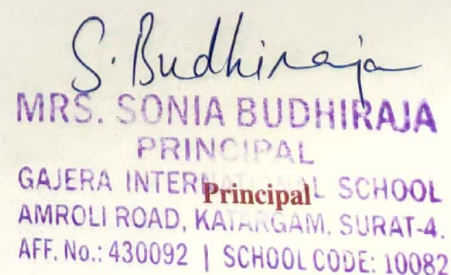 S. Budhiraja
MRS. SONIA BUDHIRAJA
PRINCIPAL
GAJERA INTERNATIONAL SCHOOL
Principal
AMROLI ROAD, KATARGAM, SURAT-4.
AFF. No.: 430092 | SCHOOL CODE: 10082